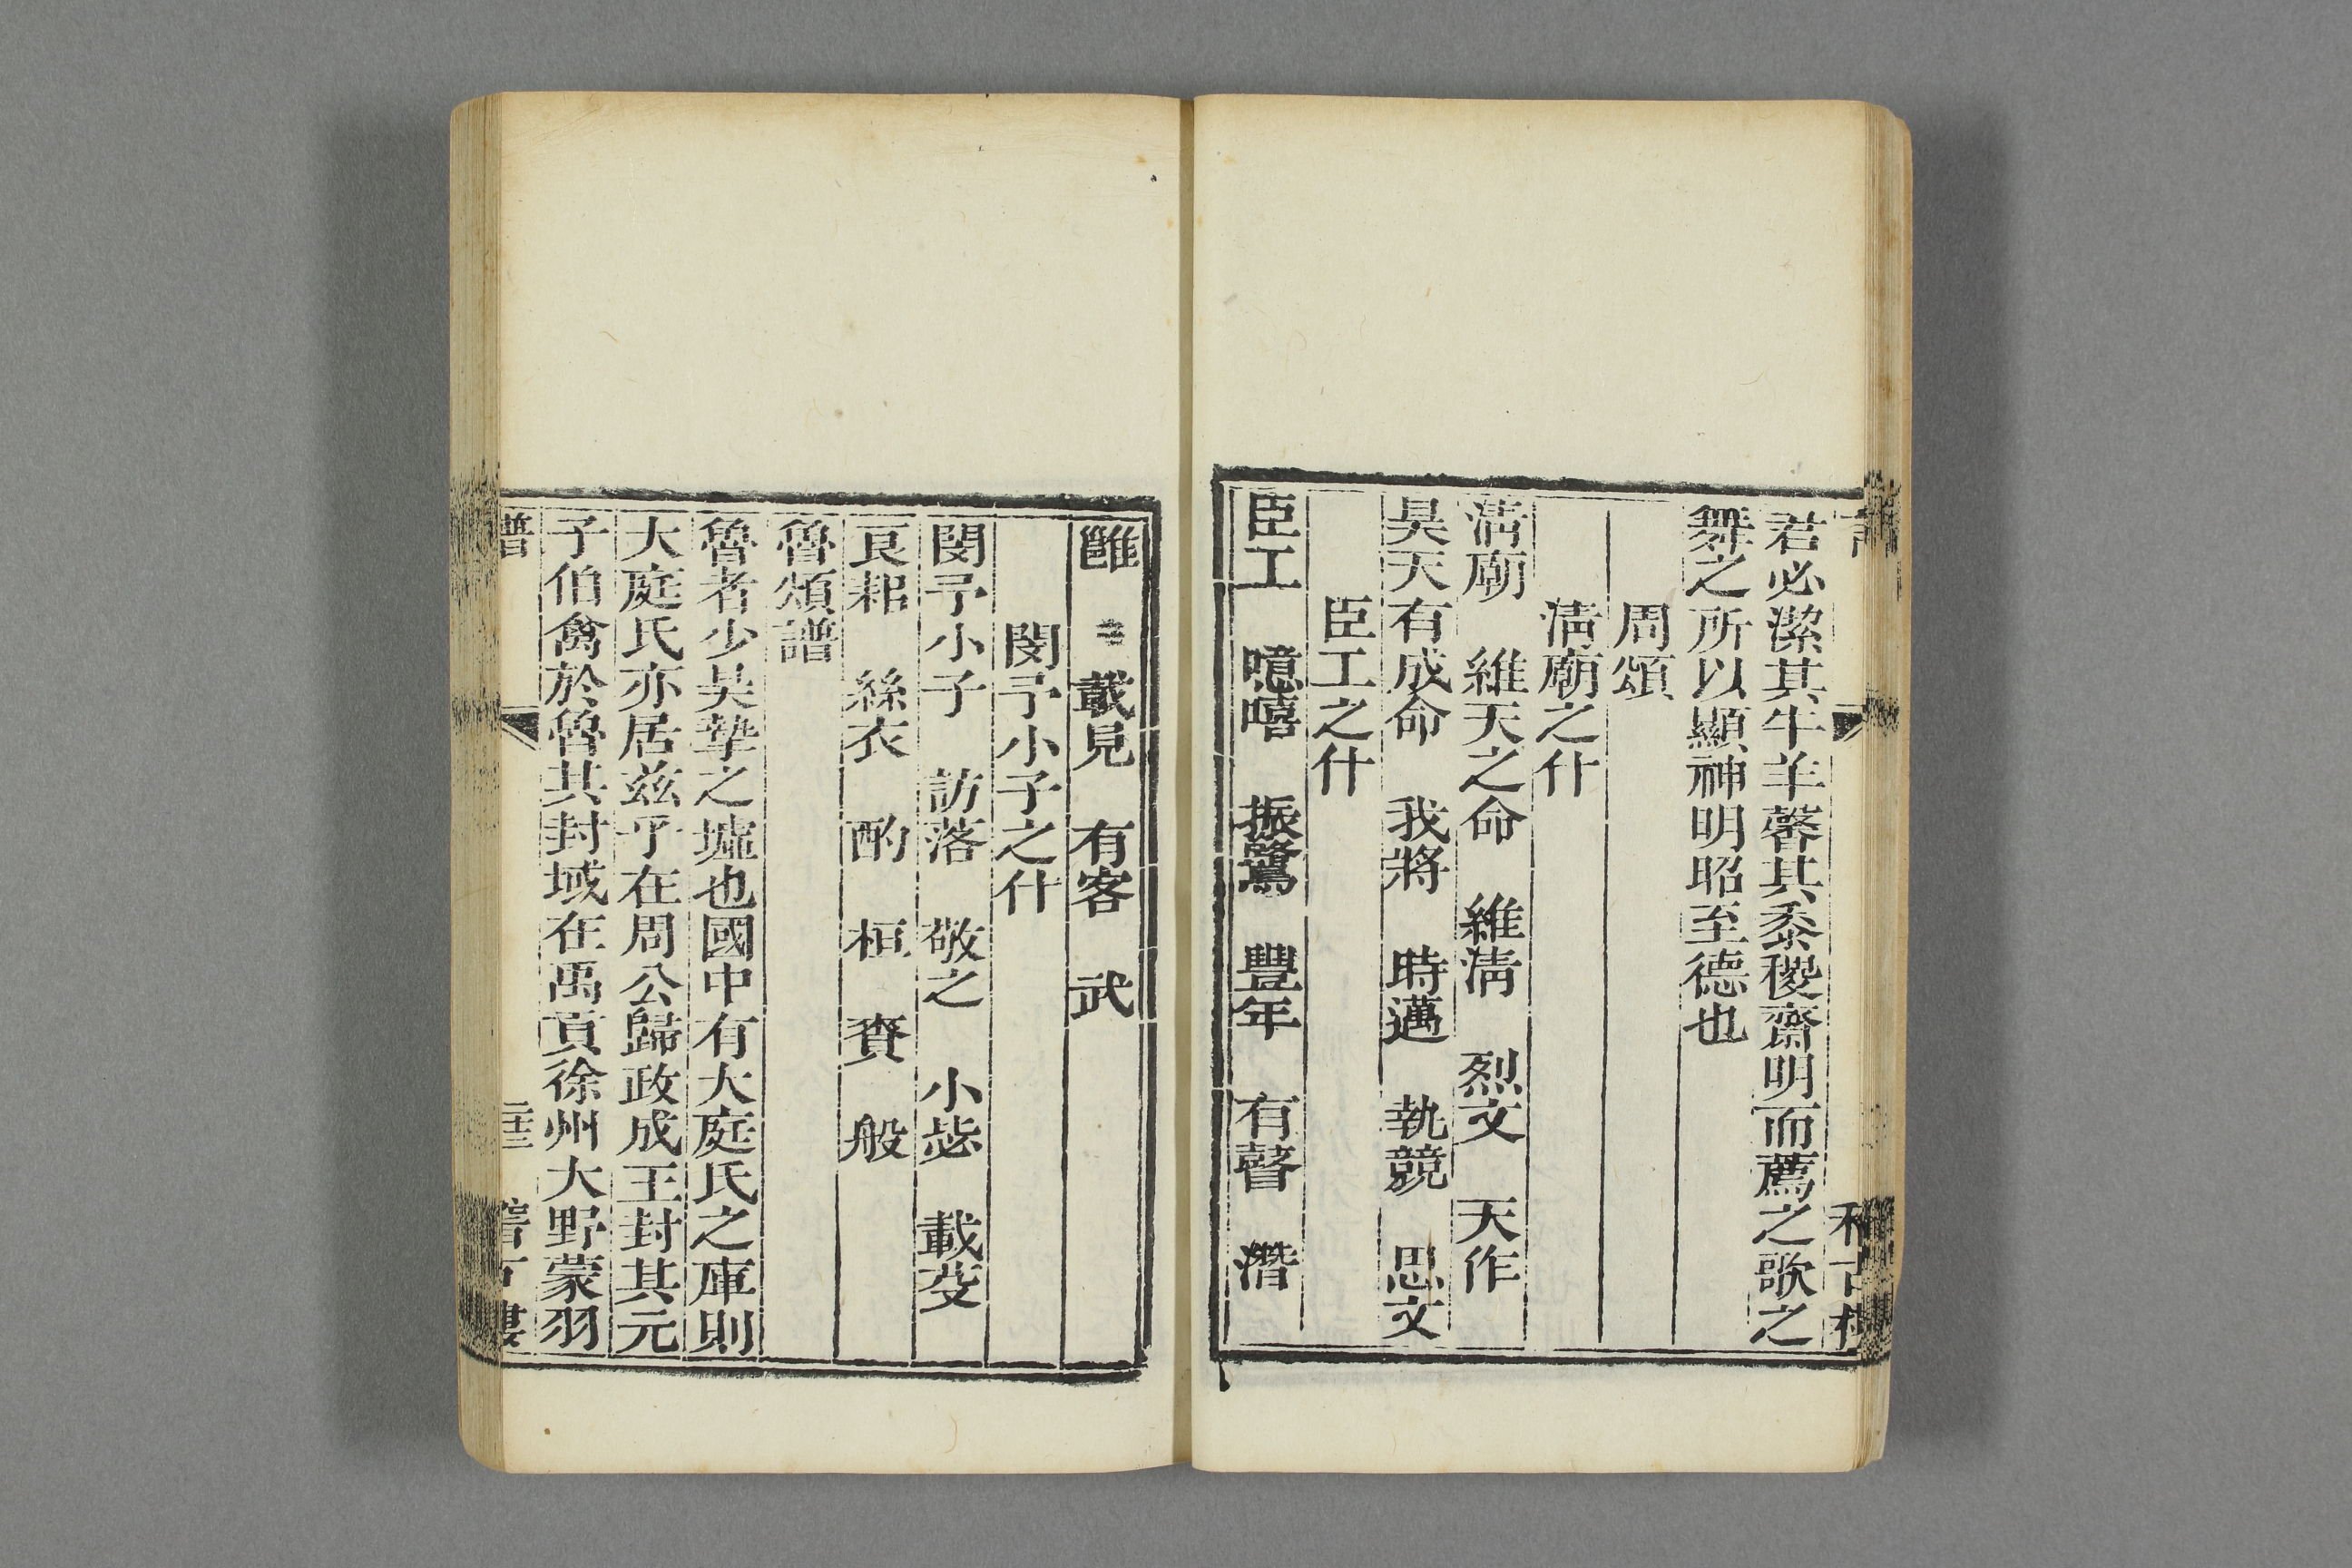 君必潔其牛羊馨其黍稷齋明而薦之歌之
舞之所以顯神明昭至德也
周頌
清廟之什
清廟　維天之命　維清　烈文　天作
昊天有成命　我將　時邁　執競　思文
臣工之什
臣工　噫嘻　振鷺　豐年　有瞽　潛
雝　載見　有客　武
閔予小子之什
閔予小子　訪落　敬之　小毖　載芟
良耜　絲衣　酌　桓　賚　般
魯頌譜
魯者少昊摯之墟也國中有大庭氏之庫則
大庭氏亦居茲乎在周公歸政成王封其元
子伯禽於魯其封域在禹貢徐州大野蒙羽
譜